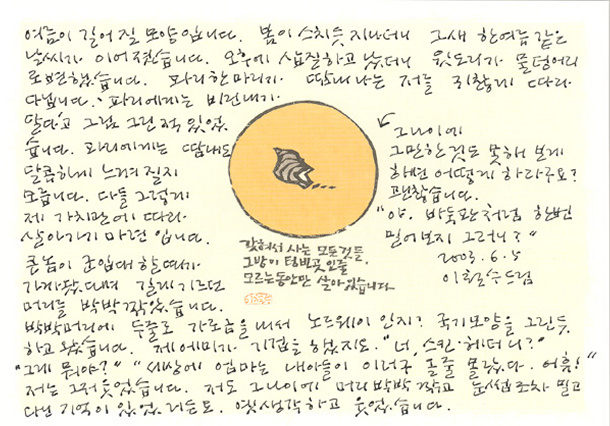 여름이 길어 질 모양 입니다. 봄이 스치듯 지나더니 그새 한여름 같은
날씨가 이어졌습니다. 오후에 삽질하고 났더니 윗도리가 물덩어리
로 변했습니다. 파리 한마리가 땀내나는 저를 귀찮게 따라
다닙니다. 파리에게는 비린내가
달다고 그럼 그런적 있었
습니다. 파리에게는 땀내도
달콤하게 느껴질지
모릅니다. 다들 그렇게
제 가치관에 따라
살아가기 마련 입니다.
큰놈이 군입대 할때가
가까왔다며 길게 기르던
머리를 박박 깎았습니다.
박박머리에 두줄로 가로금을 내서 노르웨이 인지? 국기모양을 그린듯
하고 왔습니다. 제 에미가 기겁을 했지요. "너, 스킨·헤더니?"
"그게 뭐야?" "세상에 엄마는 내아들이 이러구 올줄 몰랐다. 어휴!"
저는 그저 웃었습니다. 저도 그나이에 머리 박박 깎고 눈썹조차 밀고
다닌 기억이 있었거든요. 옛생각하고 웃었습니다.
그나이에
그만한것도 못해 보게
하면 어떻게 하라구요?
괜찮습니다.
"야. 박두만처럼 한번
밀어보지 그러니?"
2003. 6. 5
이철수 드림
갇혀서 사는 모든것들,
그방이 텅빈곳 인줄
모르는동안만 살아있습니다